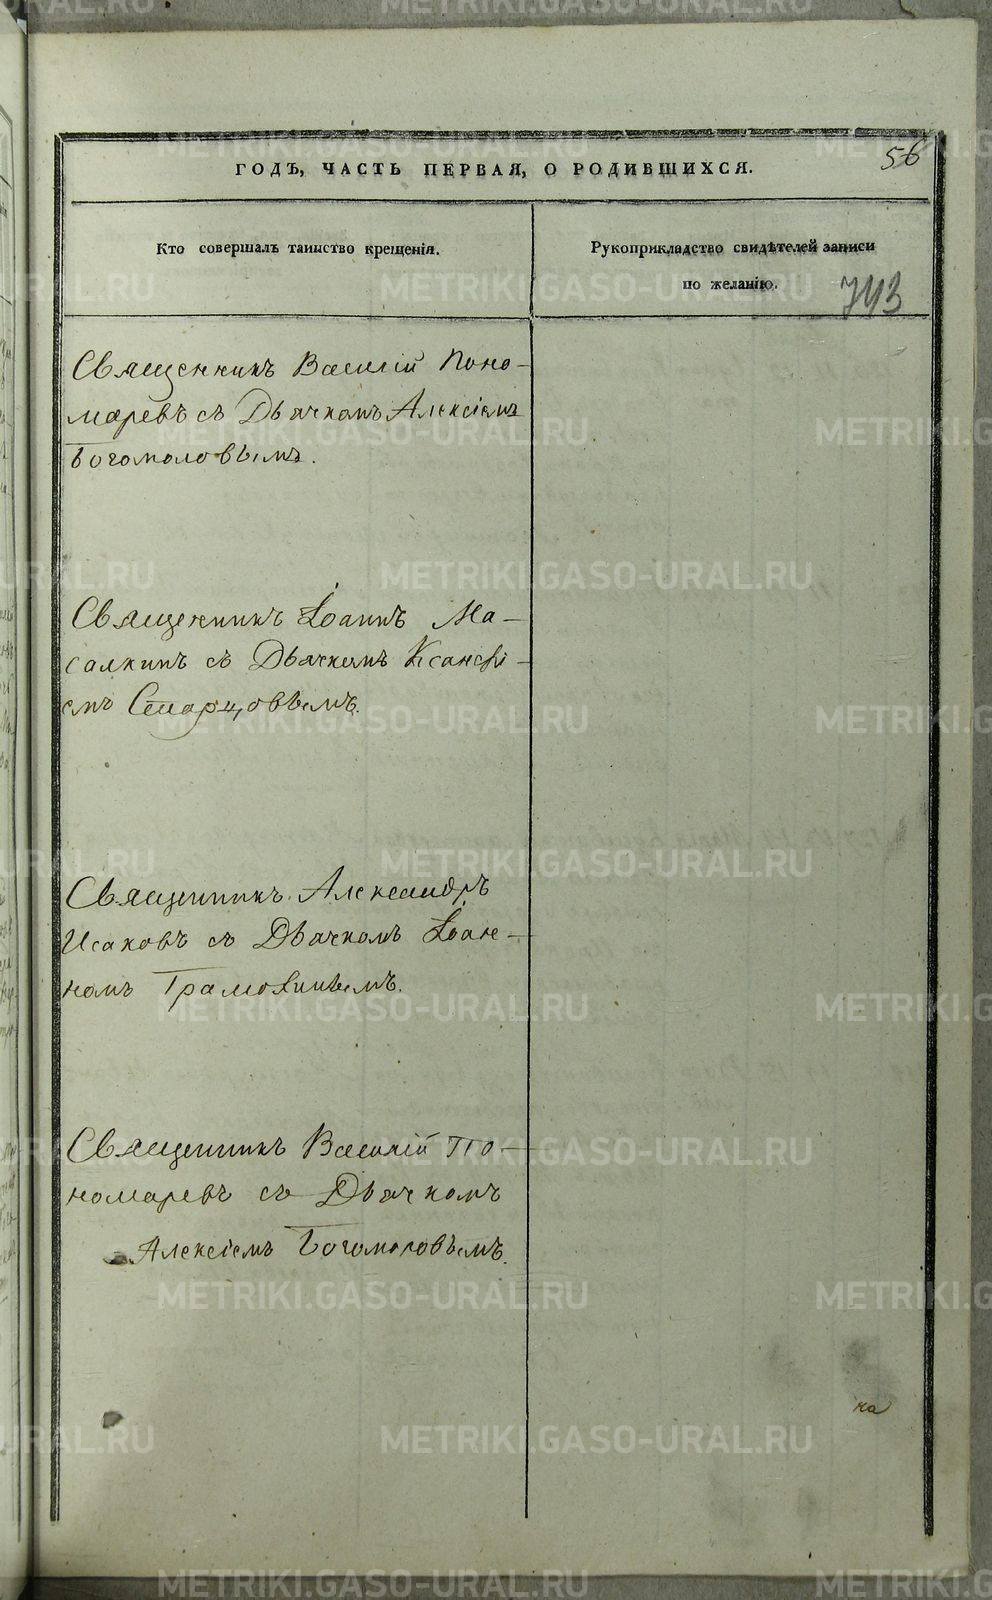 56
ГОДЪ, ЧАСТЬ ПЕРВАЯ, О РОДИВШИХСЯ.
Кто совершалъ таинство крещенія.
Рукоприкладство свидѣтелей записи
по желанію.
743
Священникъ Василій Поно-
маревъ съ Дьячкомъ Алексіемъ
Богомоловымъ.
Священникъ Іоаннъ Ма-
салкинъ съ Дьячкомъ Ксанѳі-
емъ Старцовымъ.
Священникъ Александръ
Исаковъ съ Дьячкомъ Іоан-
номъ Трамохинымъ.
Священникъ Василій По-
номаревъ съ Дьячкомъ
Алексіемъ Богомоловымъ.
на
METRIKI.GASO-URAL.RU